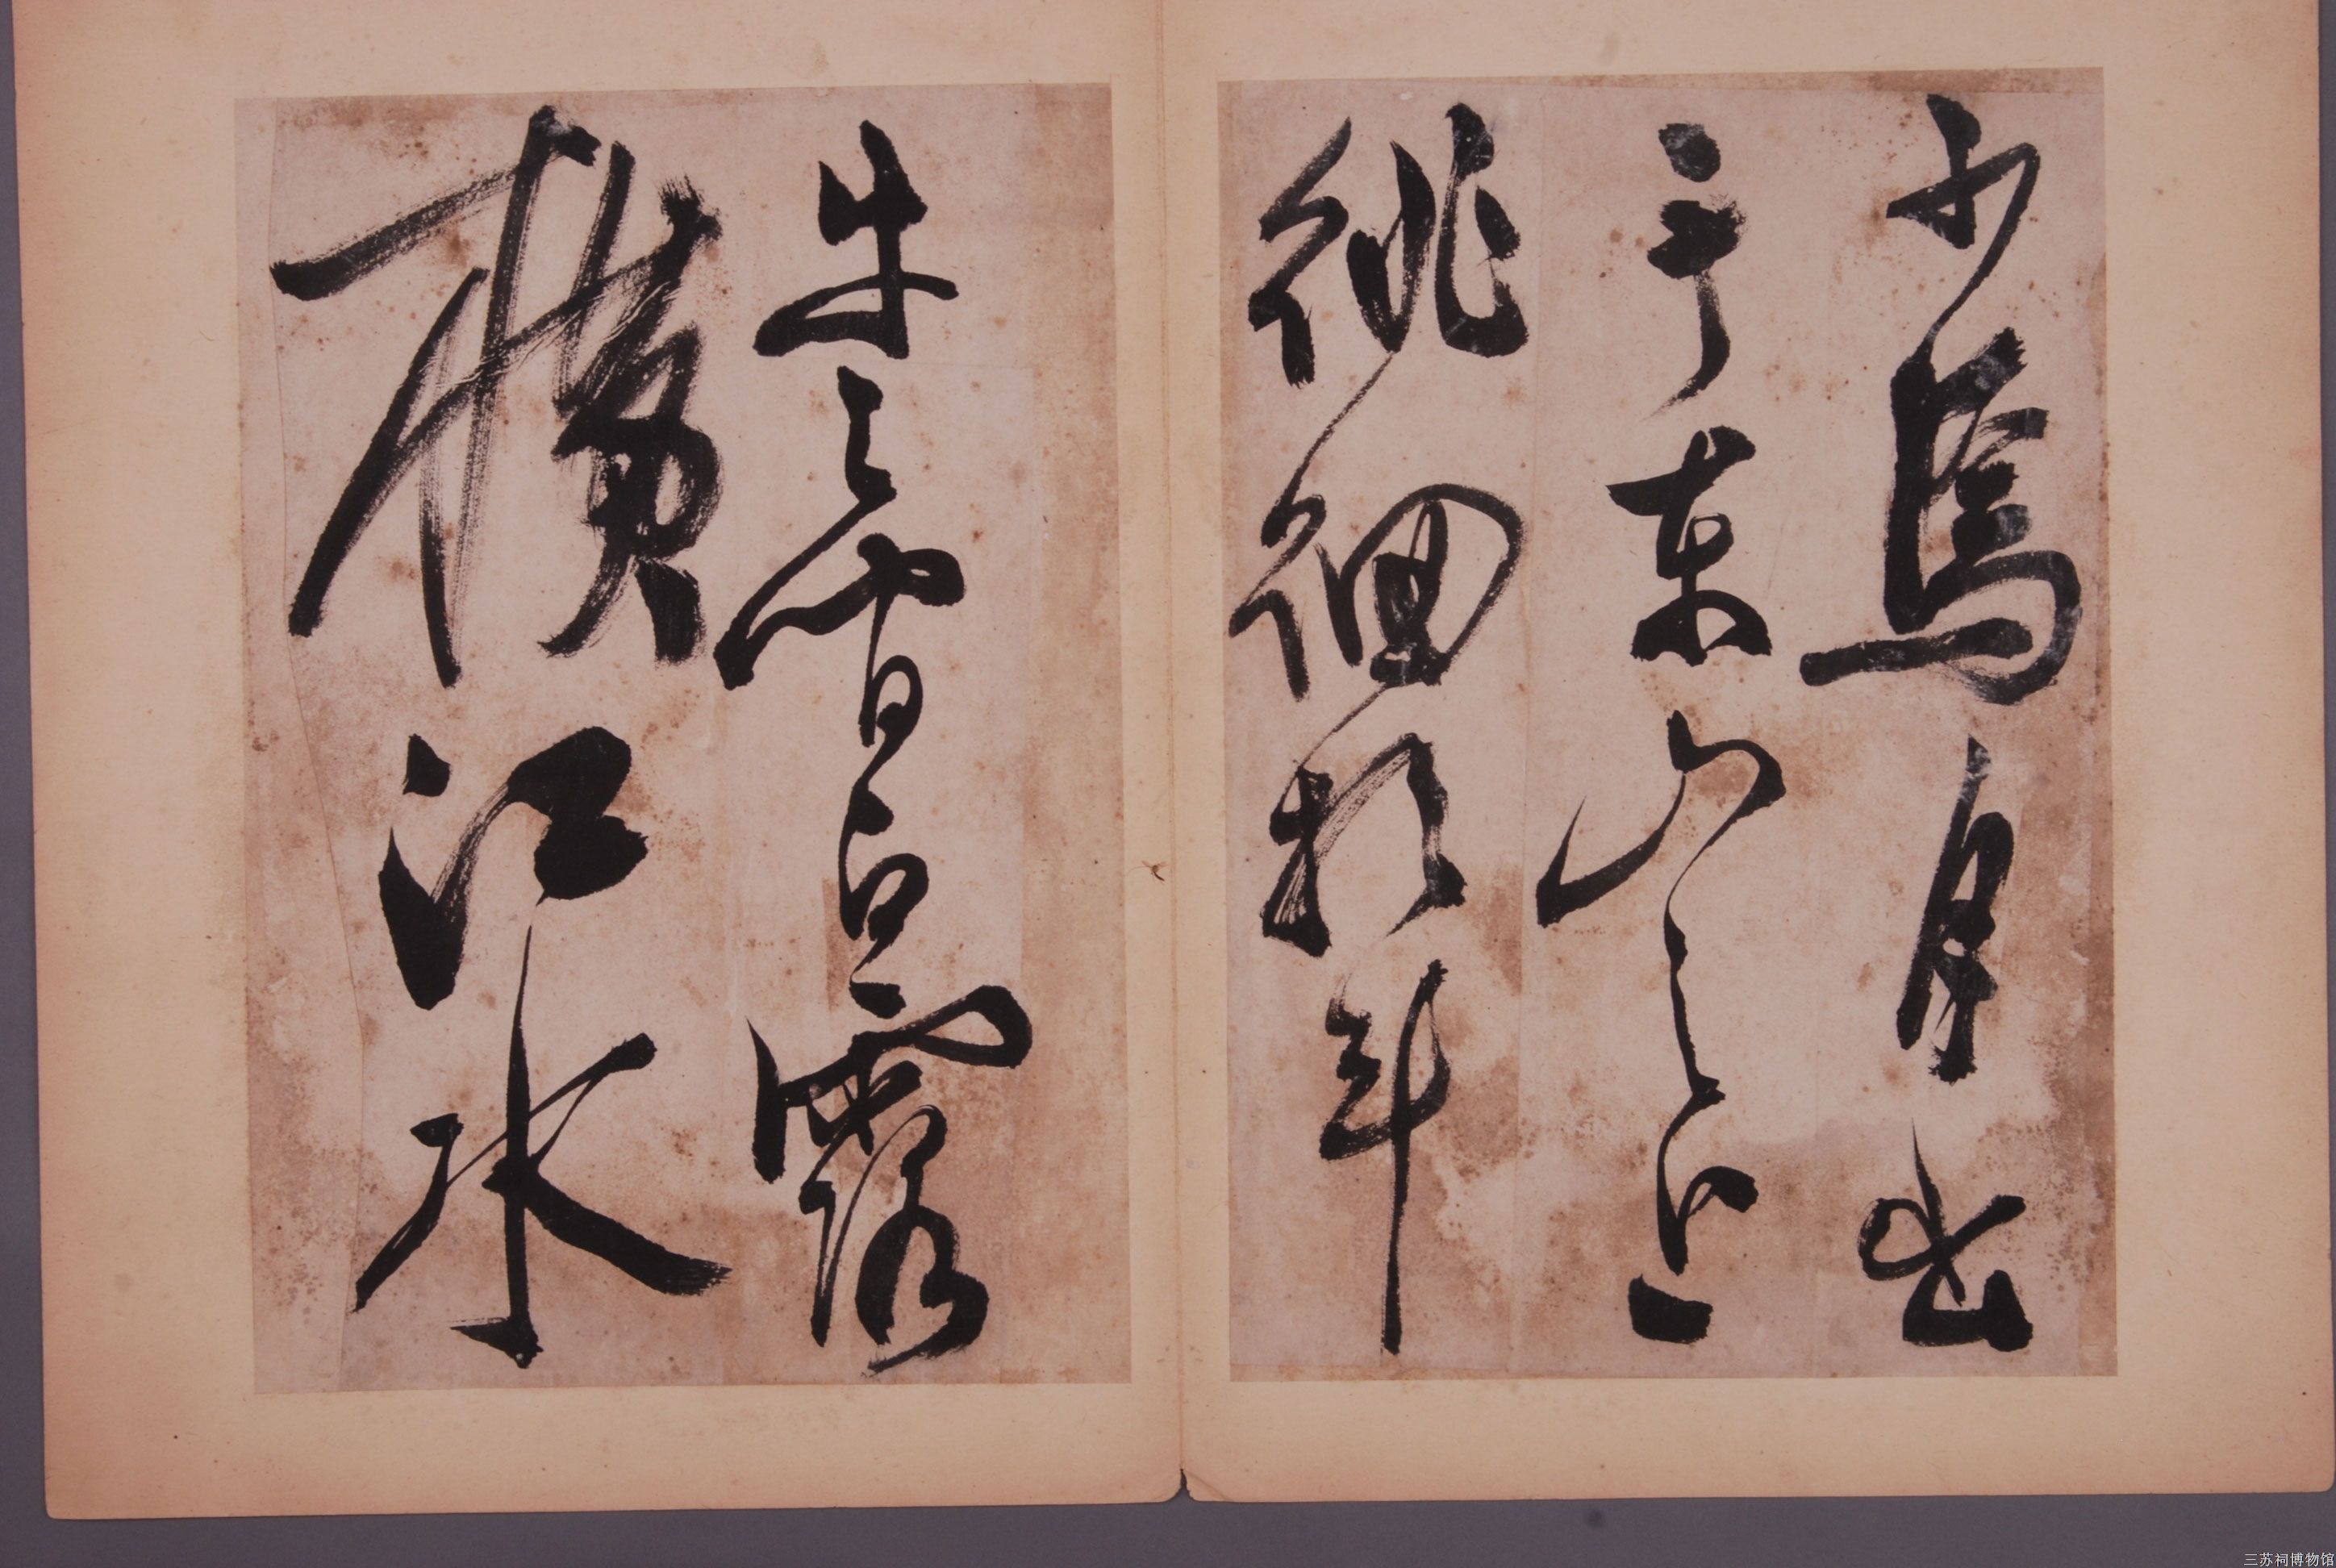 少焉月出
于東山之上
徘徊於斗
牛之間白露
橫江水
三苏祠博物馆